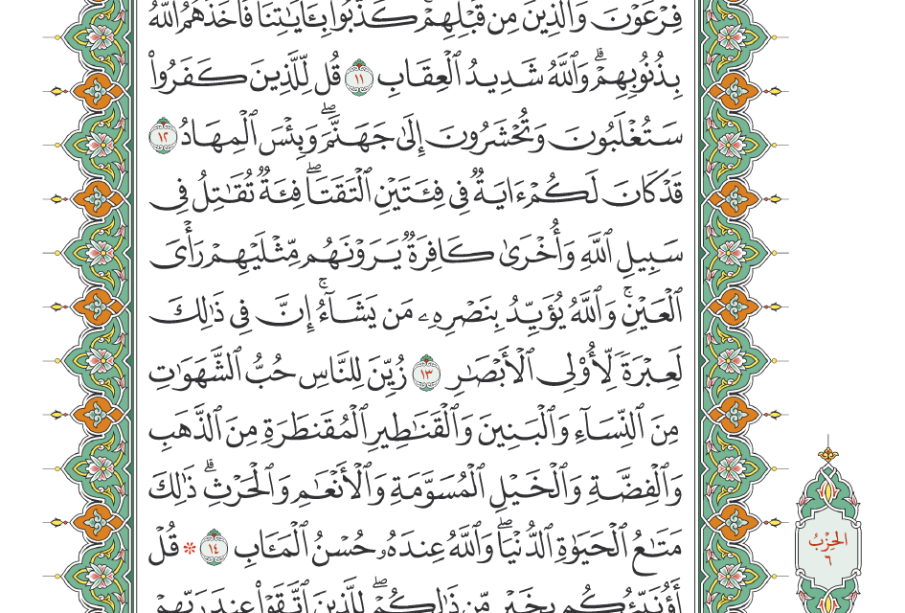 فِرْعَوْنَ وَالَّذِينَ مِن قَبْلِهِمْ ۚ كَذَّبُوا بِـَٔايَٰتِنَا فَأَخَذَهُمُ اللَّهُ
بِذُنُوبِهِمْ ۗ وَاللَّهُ شَدِيدُ الْعِقَابِ ١١ قُل لِّلَّذِينَ كَفَرُوا۟
سَتُغْلَبُونَ وَتُحْشَرُونَ إِلَىٰ جَهَنَّمَ ۖ وَبِئْسَ الْمِهَادُ ١٢
قَدْ كَانَ لَكُمْ ءَايَةٌ فِى فِئَتَيْنِ الْتَقَتَا ۖ فِئَةٌ تُقَٰتِلُ فِى
سَبِيلِ اللَّهِ وَأُخْرَىٰ كَافِرَةٌ يَرَوْنَهُم مِّثْلَيْهِمْ رَأْىَ
الْعَيْنِ ۚ وَاللَّهُ يُؤَيِّدُ بِنَصْرِهِۦ مَن يَشَآءُ ۚ إِنَّ فِى ذَٰلِكَ
لَعِبْرَةً لِّأُو۟لِى الْأَبْصَٰرِ ١٣ زُيِّنَ لِلنَّاسِ حُبُّ الشَّهَوَٰتِ
مِنَ النِّسَآءِ وَالْبَنِينَ وَالْقَنَٰطِيرِ الْمُقَنطَرَةِ مِنَ الذَّهَبِ
وَالْفِضَّةِ وَالْخَيْلِ الْمُسَوَّمَةِ وَالْأَنْعَٰمِ وَالْحَرْثِ ۗ ذَٰلِكَ
مَتَٰعُ الْحَيَوٰةِ الدُّنْيَا ۖ وَاللَّهُ عِندَهُۥ حُسْنُ الْمَـَٔابِ ١٤ * قُلْ
أَؤُنَبِّئُكُم بِخَيْرٍ مِّن ذَٰلِكُمْ ۖ لِلَّذِينَ اتَّقَوْا۟ عِندَ رَبِّهِمْ
الحِزْبُ
٦